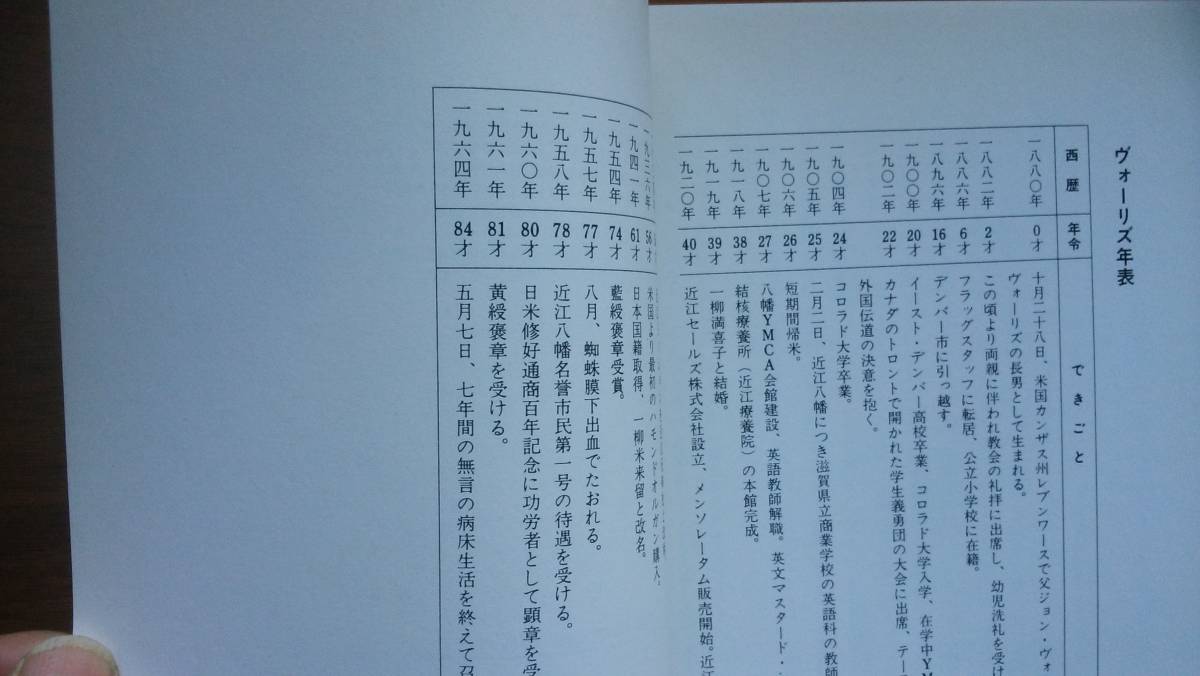 ヴォーリズ年表
西歴
年令
できごと
一八八〇年
0才
十月二十八日、米国カンザス州レブンワースで父ジョン・ヴォ
ヴォーリズの長男として生まれる。
一八八二年
2才
この頃より両親に伴われ教会の礼拝に出席し、幼児洗礼を受け
一八八六年
6才
フラッグスタッフに転居、公立小学校に在籍。
一八九六年
16才
デンバー市に引っ越す。
一九〇〇年
20才
イースト・デンバー高校卒業、コロラド大学入学、在学中YM
一九〇二年
22才
カナダのトロントで開かれた学生義勇団の大会に出席、テー
外国伝道の決意を抱く。
一九〇四年
24才
コロラド大学卒業。
一九〇五年
25才
二月二日、近江八幡につき滋賀県立商業学校の英語科の教師
一九〇六年
26才
短期間帰米。
一九〇七年
27才
八幡YMCA会館建設、英語教師解職。英文マスタード・
一九一八年
38才
結核療養所（近江療養院）の本館完成。
一九一九年
39才
一柳満喜子と結婚。
一九二〇年
40才
近江セールズ株式会社設立、メンソレータム販売開始。近江
一九三六年
56才
米国より最初のハモンドオルガン購入。
一九四一年
61才
日本国籍取得、一柳米来留と改名。
一九五四年
74才
藍綬褒章受賞。
一九五七年
77才
八月、蜘蛛膜下出血でたおれる。
一九五八年
78才
近江八幡名誉市民第一号の待遇を受ける。
一九六〇年
80才
日米修好通商百年記念に功労者として顕章を受
一九六一年
81才
黄綬褒章を受ける。
一九六四年
84才
五月七日、七年間の無言の病床生活を終えて召